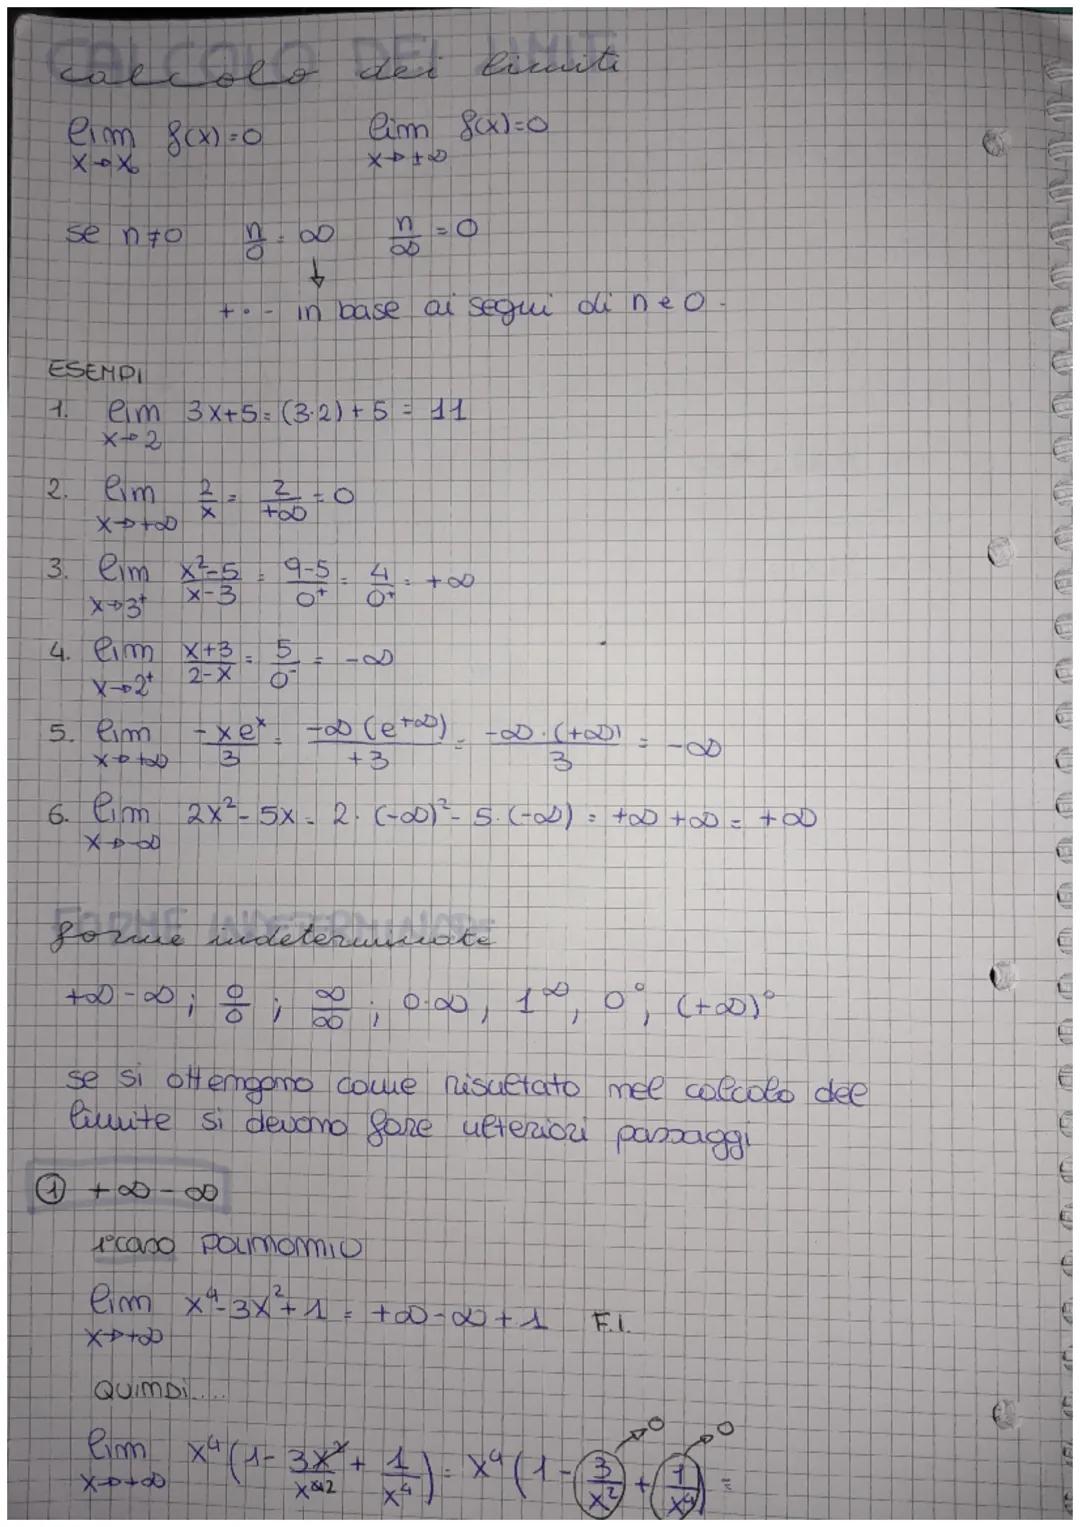 CALCOLO DEI LIMITI
calcolo dei limiti
lim f(x)=0 lim f(x)=0
x→x₀ x→±∞
se n≠0 n/0 = ∞ n/∞ = 0
↓
+ o - in base ai segni di n e 0.
ESEMPI
1. lim 3x+5 = (3·2)+5 = 11
x→2
2. lim 2/x = 2/+∞ = 0
x→+∞
3. lim x²-5/x-3 = 9-5/0⁺ = 4/0⁺ = +∞
x→3⁺
4. lim x+3/2-x = 5/0⁻ = -∞
x→2⁺
5. lim -xeˣ/3 = -∞(e⁺∞)/+3 = -∞·(+∞)/3 = -∞
x→+∞
6. lim 2x²-5x = 2·(-∞)²-5·(-∞) = +∞+∞ = +∞
x→-∞
FORME INDETERMINATE
forme indeterminate
+∞-∞; 0/0; ∞/∞; 0·∞, 1^∞, 0⁰, (+∞)⁰
se si ottengono come risultato nel calcolo del
limite si devono fare ulteriori passaggi
① +∞-∞
1°caso POLINOMIO
lim x⁴-3x²+1 = +∞-∞+1 F.I.
x→+∞
QUINDI....
→0 →0
lim x⁴(1-3x²/x⁴2 + 1/x⁴) = x⁴(1-3/x² + 1/x⁴) =
x→+∞